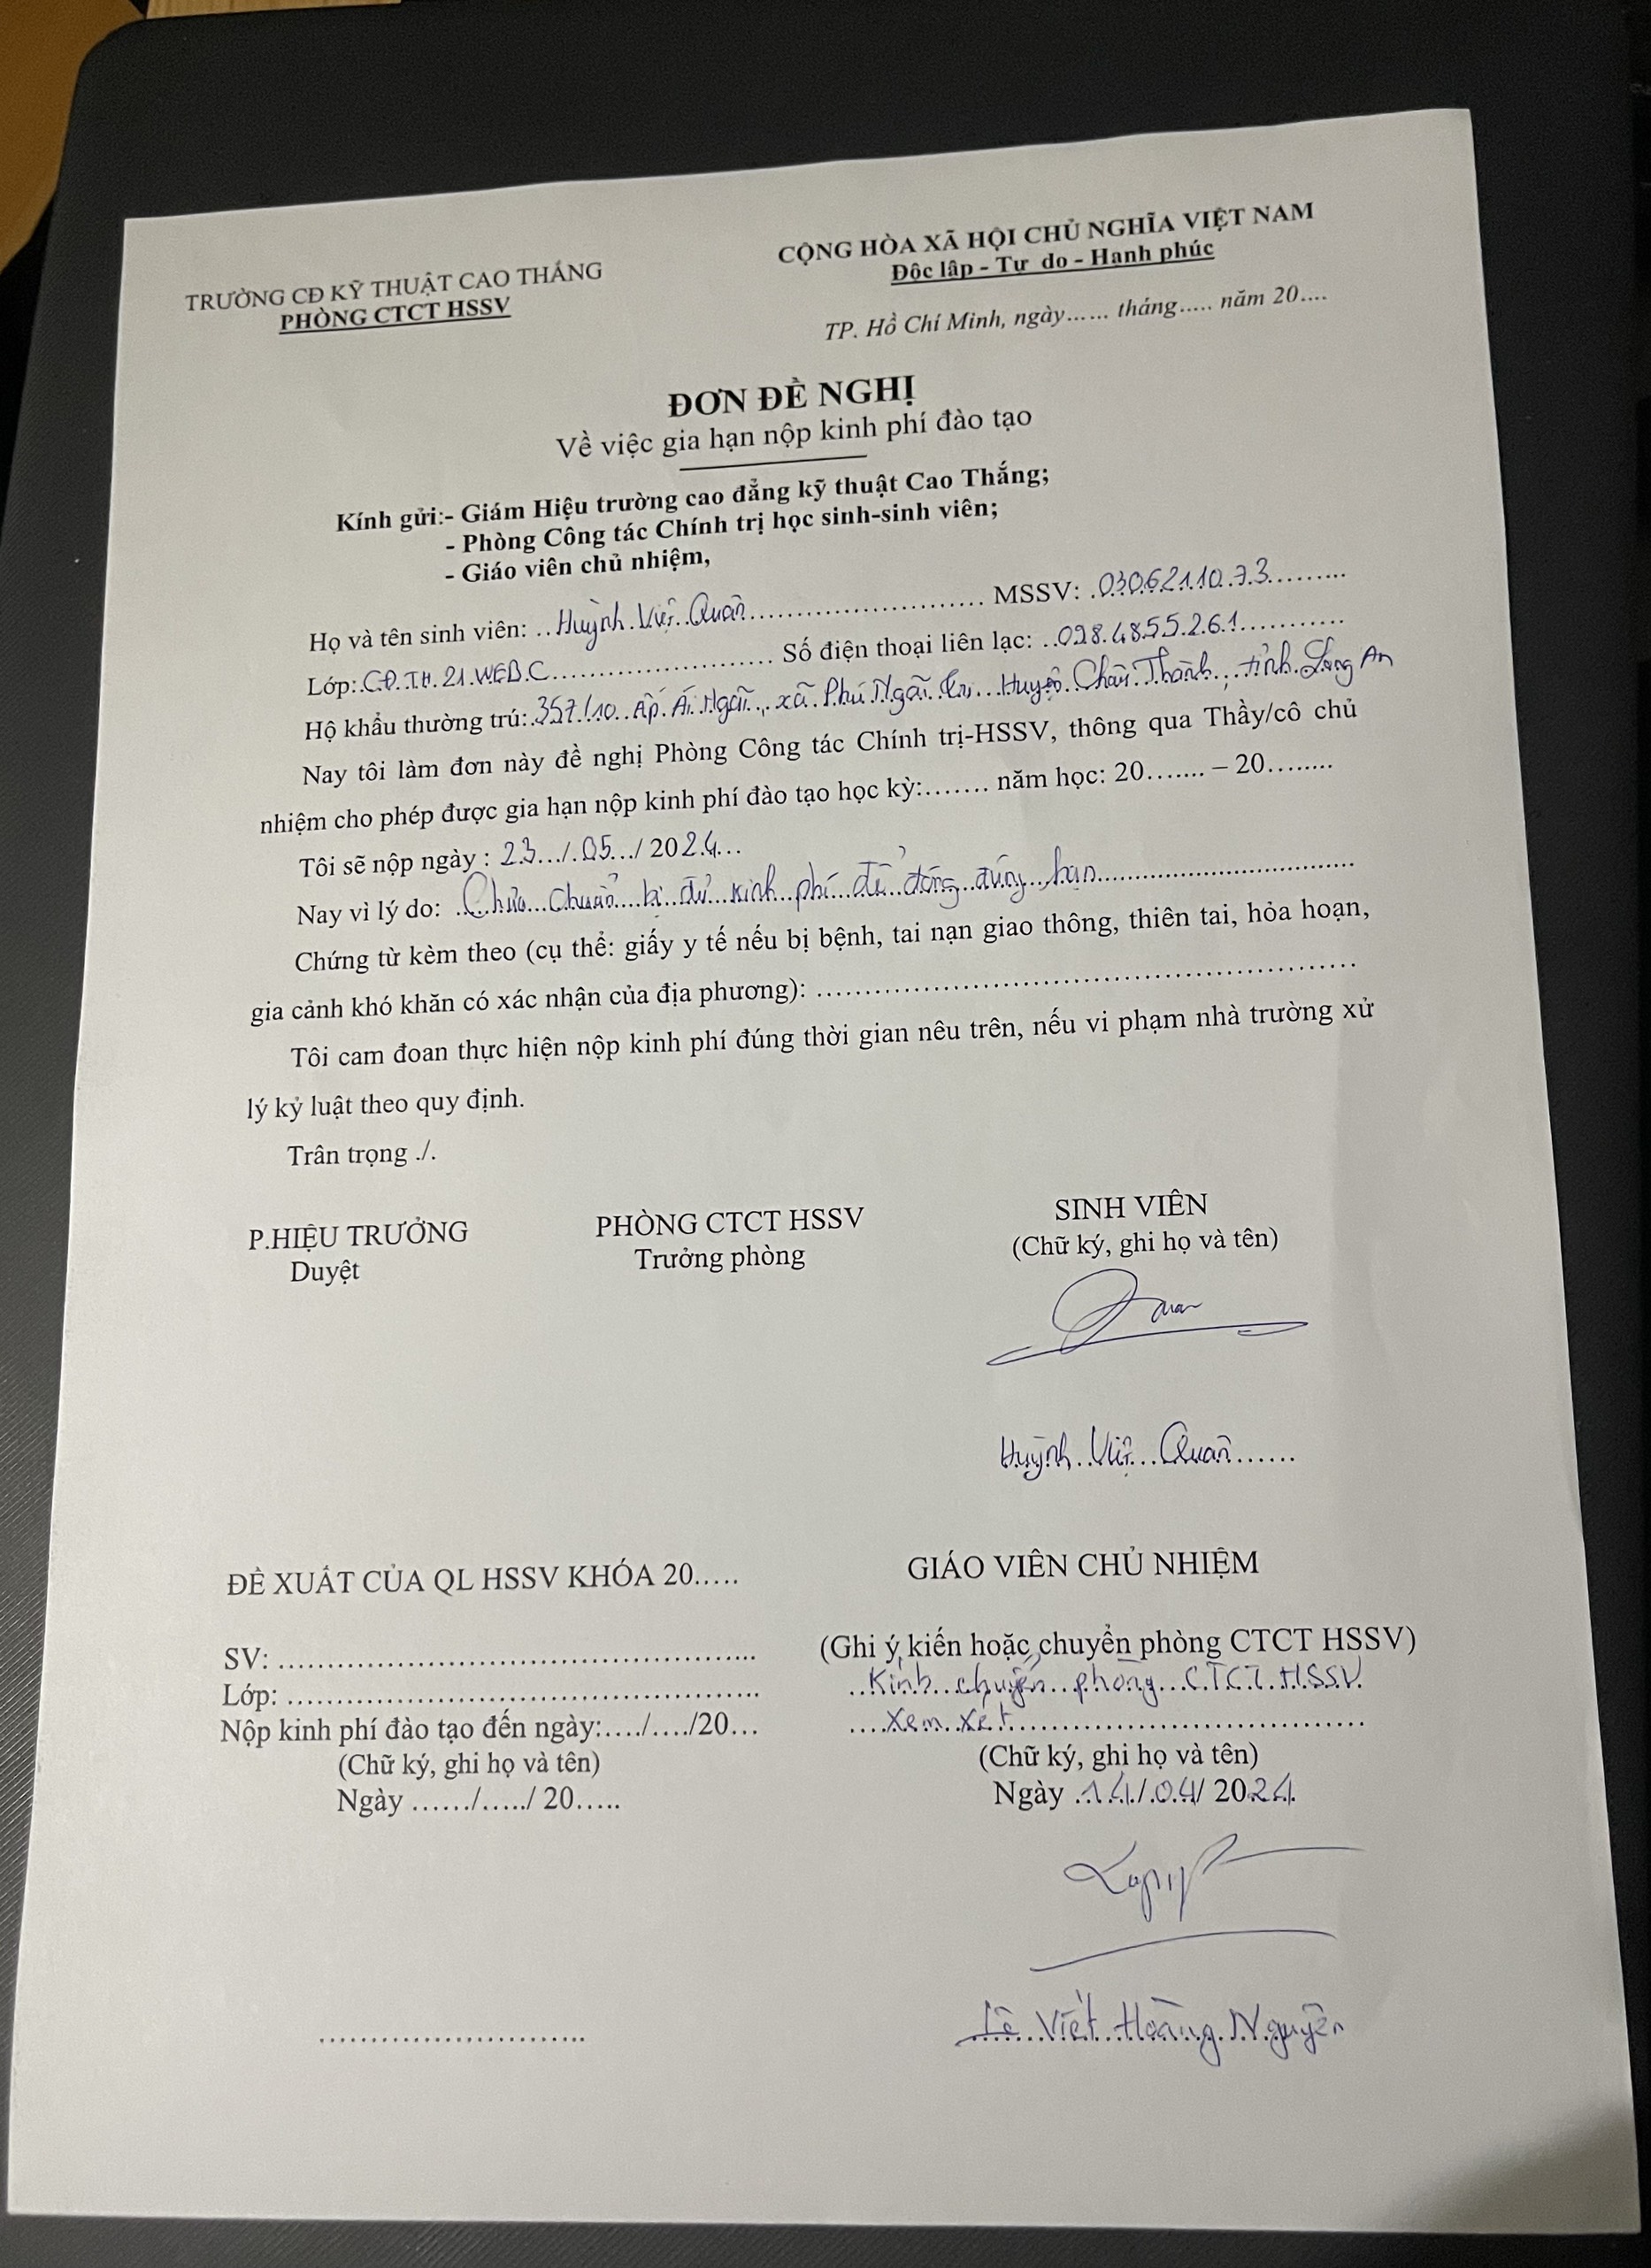 TRƯỜNG CĐ KỸ THUẬT CAO THẮNG
PHÒNG CTCT HSSV
CỘNG HÒA XÃ HỘI CHỦ NGHĨA VIỆT NAM
Độc lập - Tự do - Hạnh phúc
TP. Hồ Chí Minh, ngày...... tháng..... năm 20....
ĐƠN ĐỀ NGHỊ
Về việc gia hạn nộp kinh phí đào tạo
Kính gửi:- Giám Hiệu trường cao đẳng kỹ thuật Cao Thắng;
- Phòng Công tác Chính trị học sinh-sinh viên;
- Giáo viên chủ nhiệm,
Họ và tên sinh viên: Huỳnh Viết Quân MSSV: 0306211073
Lớp: CĐ TH 21 WEB C Số điện thoại liên lạc: 0284855261
Hộ khẩu thường trú: 357/10 Ấp Ái Ngãi, xã Phú Ngãi Trị Huyện Châu Thành, tỉnh Long An
Nay tôi làm đơn này đề nghị Phòng Công tác Chính trị-HSSV, thông qua Thầy/cô chủ
nhiệm cho phép được gia hạn nộp kinh phí đào tạo học kỳ:....... năm học: 20........ – 20........
Tôi sẽ nộp ngày : 23/05/2024
Nay vì lý do: Chưa chuẩn bị đủ kinh phí để đóng đúng hạn
Chứng từ kèm theo (cụ thể: giấy y tế nếu bị bệnh, tai nạn giao thông, thiên tai, hỏa hoạn,
gia cảnh khó khăn có xác nhận của địa phương): ..........
Tôi cam đoan thực hiện nộp kinh phí đúng thời gian nêu trên, nếu vi phạm nhà trường xử
lý kỷ luật theo quy định.
Trân trọng ./.
P.HIỆU TRƯỞNG PHÒNG CTCT HSSV SINH VIÊN
Duyệt Trưởng phòng (Chữ ký, ghi họ và tên)
Huỳnh Viết Quân
ĐỀ XUẤT CỦA QL HSSV KHÓA 20..... GIÁO VIÊN CHỦ NHIỆM
SV: .......... (Ghi ý kiến hoặc chuyển phòng CTCT HSSV)
Lớp: .......... Kính chuyển phòng CTCT HSSV
Nộp kinh phí đào tạo đến ngày:..../..../20... xem xét
(Chữ ký, ghi họ và tên) (Chữ ký, ghi họ và tên)
Ngày ....../...../ 20..... Ngày 14/04/2024
Lê Viết Hoàng Nguyên